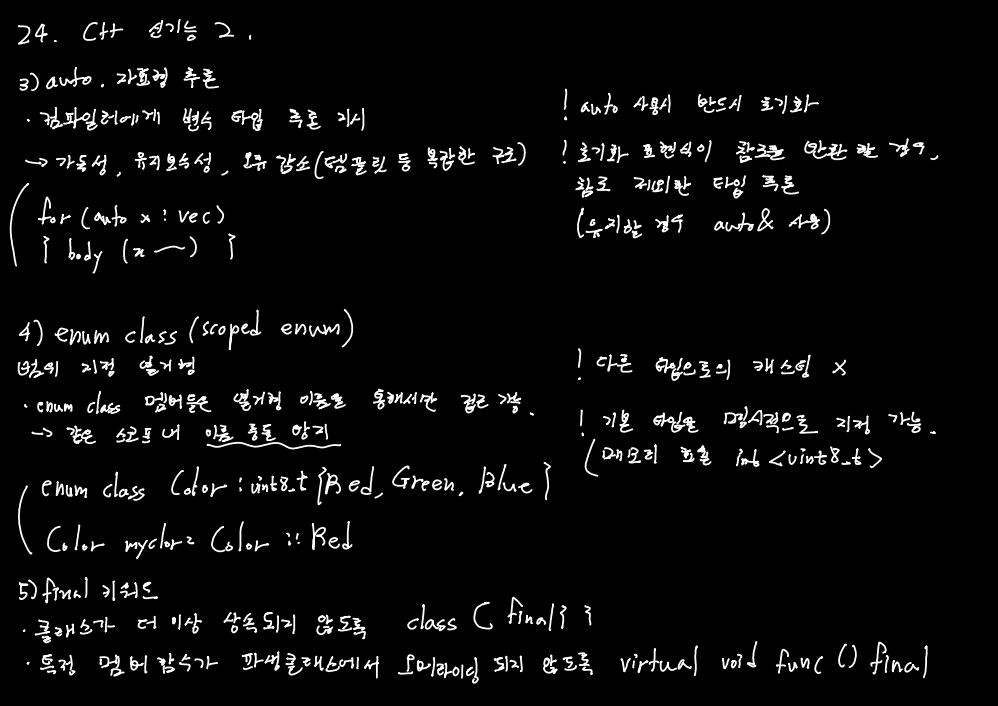 24. C++ 신기능 2.
3) auto. 자료형 추론
· 컴파일러에게 변수 타입 추론 지시
→ 가독성, 유지보수성, 오류 감소 (템플릿 등 복잡한 구조)
for (auto x : vec)
{ body (x ~) }
! auto 사용시 반드시 초기화
! 초기화 표현식이 참조를 반환 할 경우,
참조 제외한 타입 추론
(유지할 경우 auto& 사용)
4) enum class (scoped enum)
범위 지정 열거형
· enum class 멤버들은 열거형 이름을 통해서만 접근 가능.
→ 같은 스코프 내 이름 충돌 방지
enum class Color : uint8_t {Red, Green, Blue}
Color myclor = Color :: Red
! 다른 타입으로의 캐스팅 X
! 기본 타입을 명시적으로 지정 가능.
(메모리 효율 int < uint8_t >
5) final 키워드
· 클래스가 더 이상 상속되지 않도록 class C final { }
· 특정 멤버함수가 파생클래스에서 오버라이딩 되지 않도록 virtual void func () final